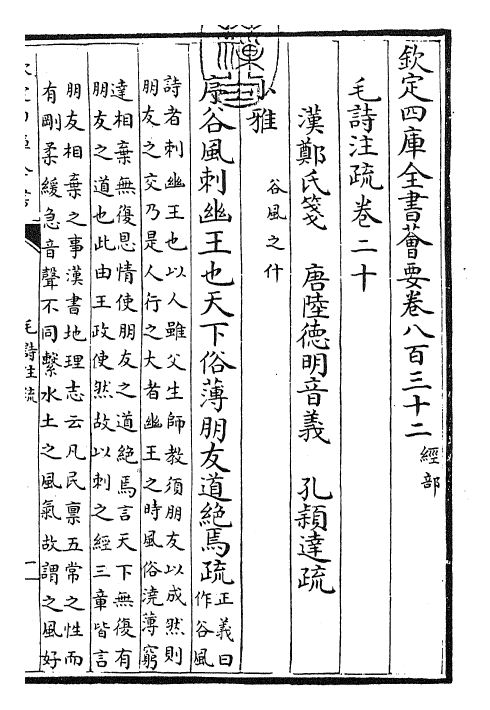 欽定四庫全書薈要卷八百三十二
經部
毛詩注疏卷二十
漢鄭氏箋 唐陸德明音義 孔穎達疏
小雅
谷風之什
序谷風刺幽王也天下俗薄朋友道絶焉疏
正義曰
作谷風
詩者刺幽王也以人雖父生師教須朋友以成然則
朋友之交乃是人行之大者幽王之時風俗澆薄窮
達相棄無復恩情使朋友之道絶焉言天下無復有
朋友之道也此由王政使然故以刺之經三章皆言
朋友相棄之事漢書地理志云凡民禀五常之性而
有剛柔緩急音聲不同繫水土之風氣故謂之風好
毛詩注疏
一